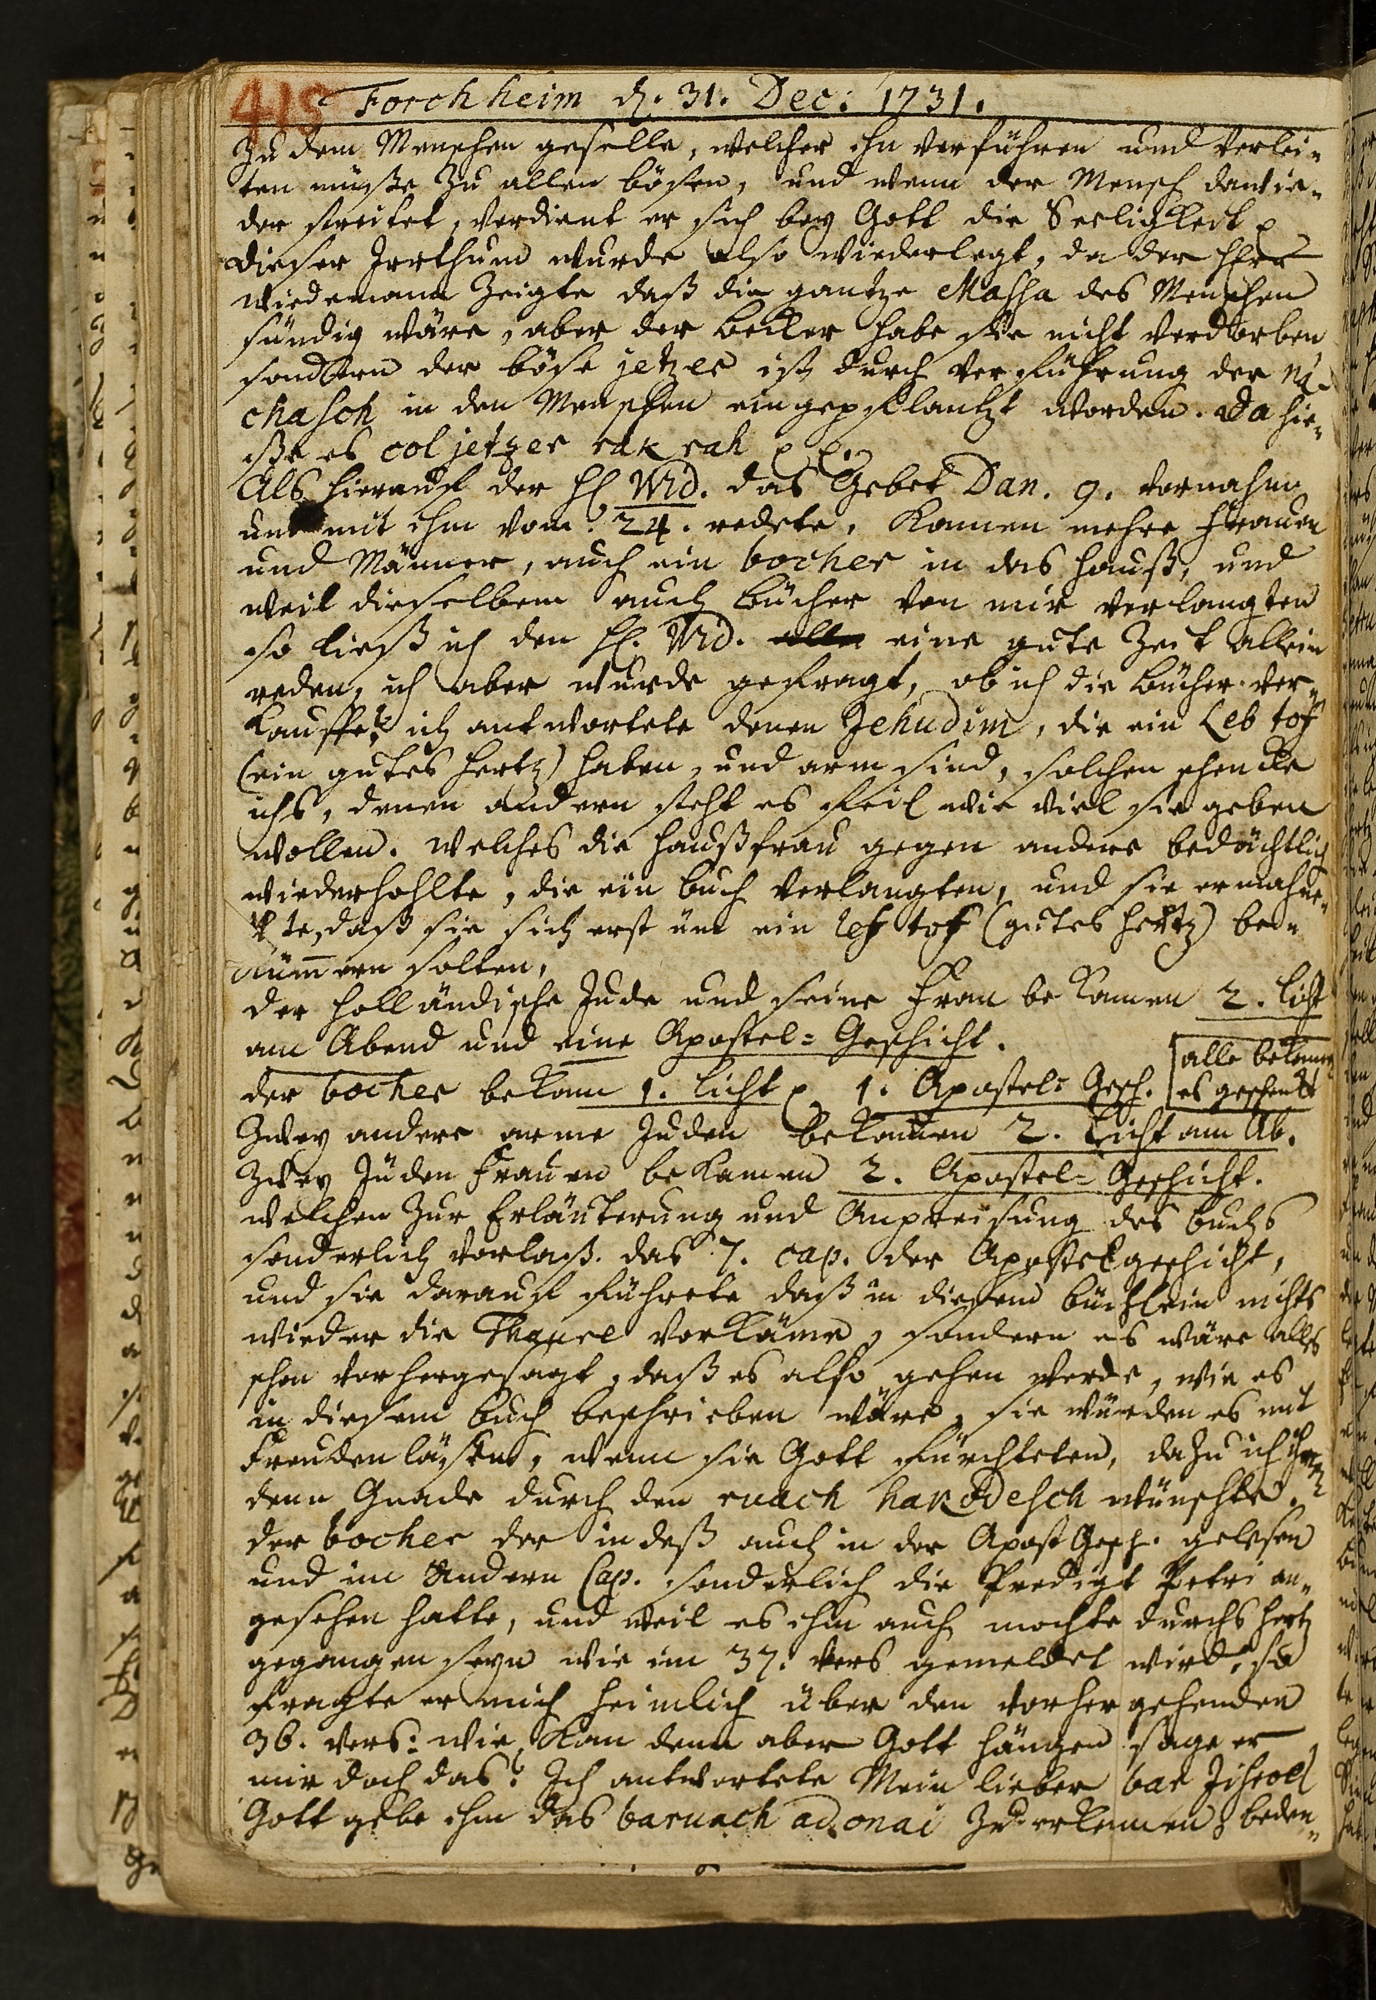 418 Forchheim d. 31. Dec: 1731.
zu dem Menschen geselle, welcher ihn verführen und verlei-
ten müste zu allen bösen, und wenn der Mensch dawie-
der streitet, verdient er sich bey Gott die Seeligkeit p
dieser Irrthum wurde also wiederlegt, da der Herr
Wiedemann zeigte daß die gantze Massa des Menschen
sündig wäre, aber der Keiler habe sie nicht verdorben
sondern der böse jetzer ist durch Verführung der na-
chasch in den Menschen eingepflantzt worden. Da hie-
ße es col jetzer rak rah p p.
Als hierauf der H Wid. das Gebet Dan. 9. vornahm
und mit ihm vom. 24. redete, kamen mehre Frauen
und Männer, auch ein bocher in das Hauß, und
weil dieselben auch Bücher von mir verlangten
so ließ ich den H. Wid. eine gute Zeit allein
reden, ich aber wurde gefragt, ob ich die Bücher ver-
kauffe? ich antwortete denen Jehudim, die ein Leb tof
(ein gutes Hertz) haben, und arm sind, solchen schencke
ichs, denen andern steht es feil wie viel sie geben
wollen. welches die Haußfrau gegen andere bedächtlich
wiederhohlte, die ein Buch verlangten, und sie ermahne-
te, daß sie sich erst um ein lef tof (gutes Hertz) be-
kümmern solten,
der holländische Jude und seine Frau bekamen 2. Licht
am Abend und eine Apostel-Geschicht.
der bocher bekam 1. Licht p 1. Apostel-Gesch. [alle bekamen
es geschenkt
Zwey andere arme Juden bekamen 2. Licht am Ab.
Zwey Juden Frauen bekamen 2. Apostel-Geschicht.
welchen zur Erläuterung und Anpreisung des Buchs
sonderlich vorlaß das 7. cap. der Apostelgeschicht,
und sie darauf führete daß in diesem Büchlein nichts
wieder die Thaure vorkäme, sondern es wäre alles
schon vorhergesagt, daß es also gehen werde, wie es
in diesem Buch beschrieben wäre, sie würden es mit
Freuden läsen, wenn sie Gott fürchteten, dazu ich ihnen
denn Gnade durch den ruach hakodesch wünschte.
der bocher der indeß auch in der Apost Gesch. gelesen
und im Andern Cap. sonderlich die Predigt Petri an-
gesehen hatte, und weil es ihm auch mochte durchs Hertz
gegangen seyn wie im 37. Vers gemeldet wird, so
fragte er mich heimlich über den vorhergehenden
36. vers: wie kan denn aber Gott hängen sage er
mir doch das? Ich antwortete Mein lieber bar Jisroel
Gott gebe ihm das baruach adonai zu erkennen, beden-